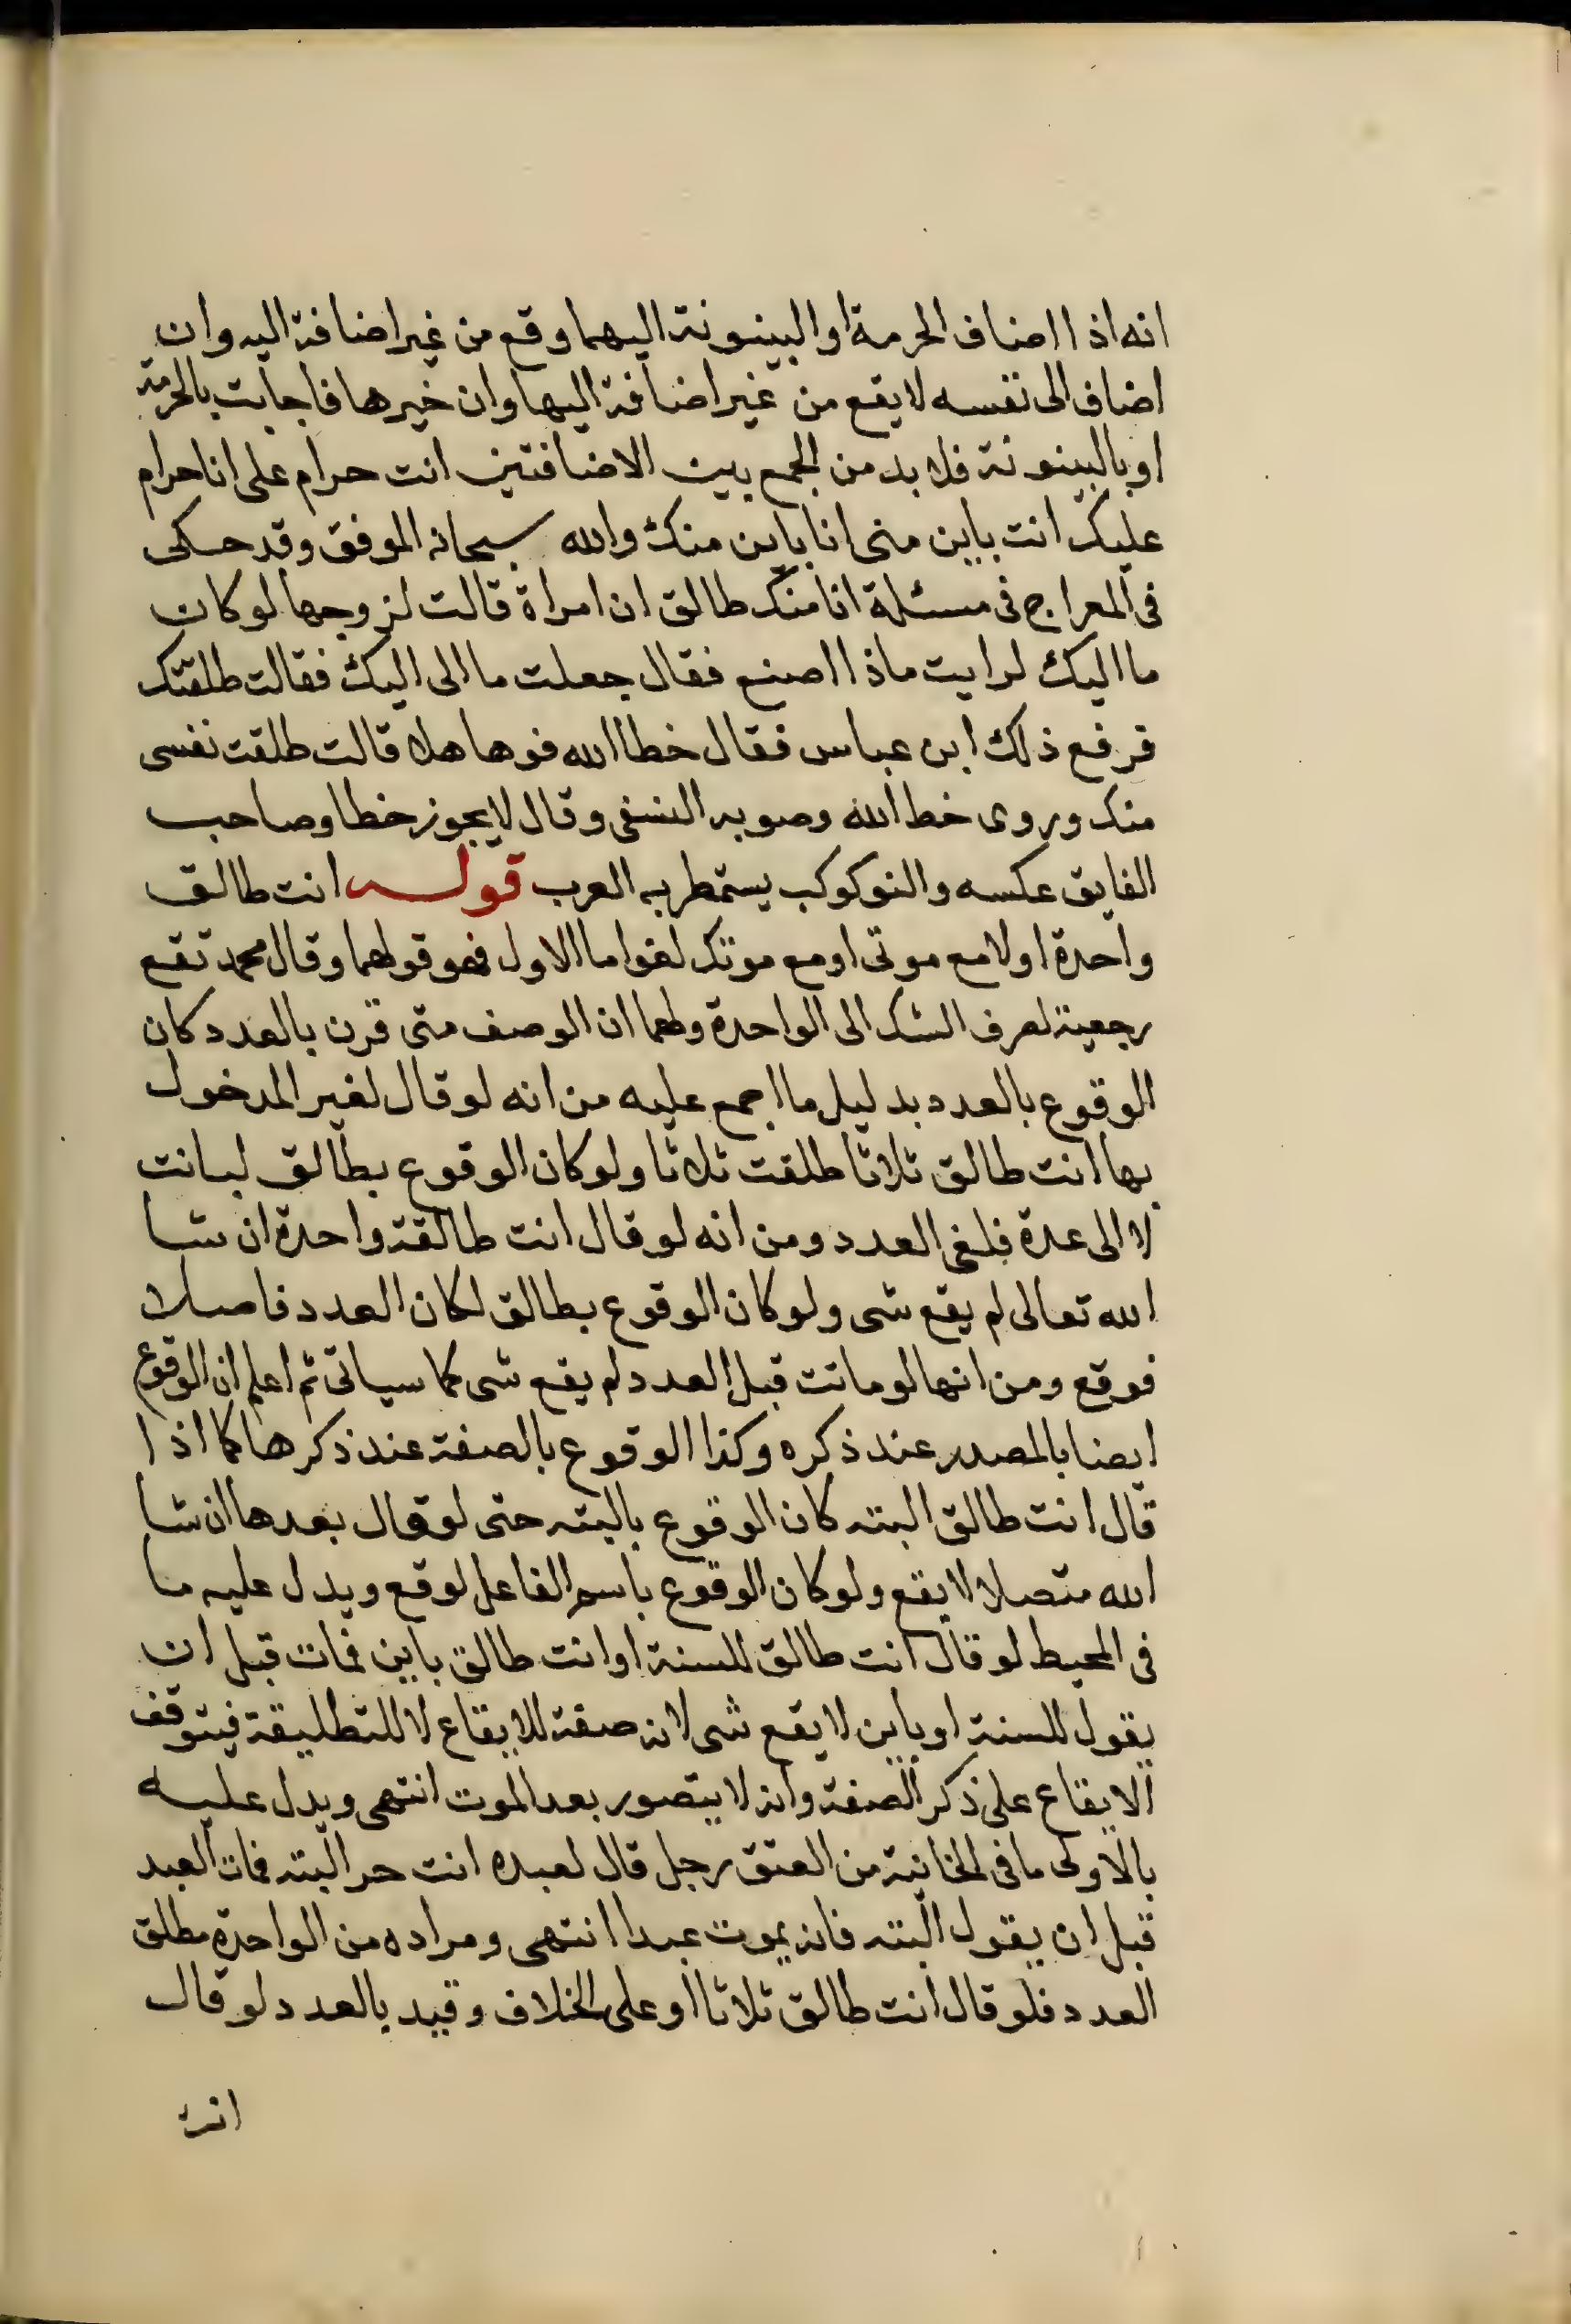 انه اذا اضاف الحرمة او البينونة اليهما وقع من غير اضافة اليه وان
اضاف الى نفسه لا يقع من غير اضافة اليها وان خيرها فاجابت بالحرمة
او بالبينونة فلا بد من الجمع بين الاضافتين انت حرام على انا حرام
عليك انت باين منى انا باين منك والله سبحانه الموفق وقد حكى
فى المعراج فى مسئلة انا منك طالق ان امراة قالت لزوجها لو كان
ما اليك لرايت ماذا اصنع فقال جعلت ما الى اليك فقالت طلقتك
فرفع ذلك ابن عباس فقال خطا الله فوها هلا قالت طلقت نفسى
منك وروى خط الله وصوبه النسفى وقال لا يجوز خطا وصاحب
الفايق عكسه والنو كوكب يستمطر به العرب قوله انت طالق
واحدة اولا مع موتى او مع موتك لغو اما الاول فهو قولهما وقال محمد تقع
رجعية لصرف الشك الى الواحدة ولهما ان الوصف متى قرن بالعدد كان
الوقوع بالعدد بدليل ما اجمع عليه من انه لو قال لغير المدخول
بها انت طالق ثلاثا طلقت ثلاثا ولو كان الوقوع بطالق لبانت
لا الى عدة فلغى العدد ومن انه لو قال انت طالقة واحدة ان شا
الله تعالى لم يقع شى ولو كان الوقوع بطالق لكان العدد فاصلا
فوقع ومن انها لو ماتت قبل العدد لم يقع شى كما سياتى ثم اعلم ان الوقوع
ايضا بالمصدر عند ذكره وكذا الوقوع بالصفة عند ذكرها كما اذا
قال انت طالق البته كان الوقوع بالبته حتى لو قال بعدها ان شا
الله متصلا لا يقع ولو كان الوقوع باسم الفاعل لوقع ويدل عليه ما
فى المحيط لو قال انت طالق للسنة او انت طالق باين فمات قبل ان
يقول للسنة او باين لا يقع شى لانه صفة للايقاع لا للتطليقة فيتوقف
الايقاع على ذكر الصفة وانه لا يتصور بعد الموت انتهى ويدل عليه
بالاولى ما فى الخانية من العتق رجل قال لعبده انت حر البته فمات العبد
قبل ان يقول البته فانه يموت عبدا انتهى ومراده من الواحدة مطلق
العدد فلو قال انت طالق ثلاثا او على الخلاف وقيد بالعدد لو قال
انت